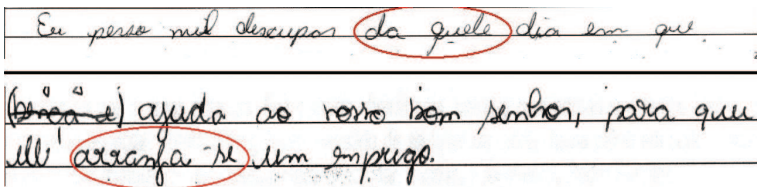 Eu pesso mil descupas da quele dia em que
(bênçãe) ajuda ao nosso bom senhor, para que
ele arranja-se um emprego.